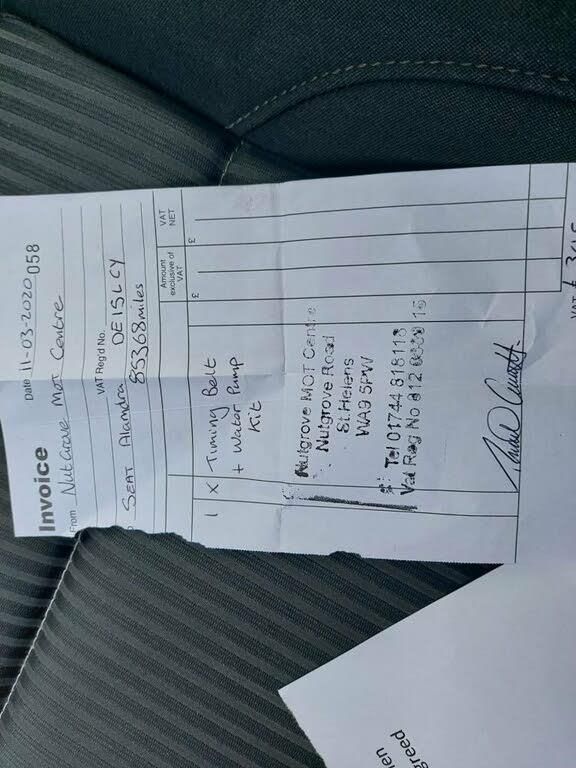 Invoice
Date 11-03-2020 058
From Nutgrove MOT Centre
VAT Reg'd No.
SEAT Alahdra DE15LCY
85368miles
Amount exclusive of VAT
VAT NET
£ £
1 X Timing Belt
+ Water Pump
Kit
Nutgrove MOT Centre
Nutgrove Road
St.Helens
WA9 5PW
Tel 01744 818118
Vat Reg No 812
VAT £
greed